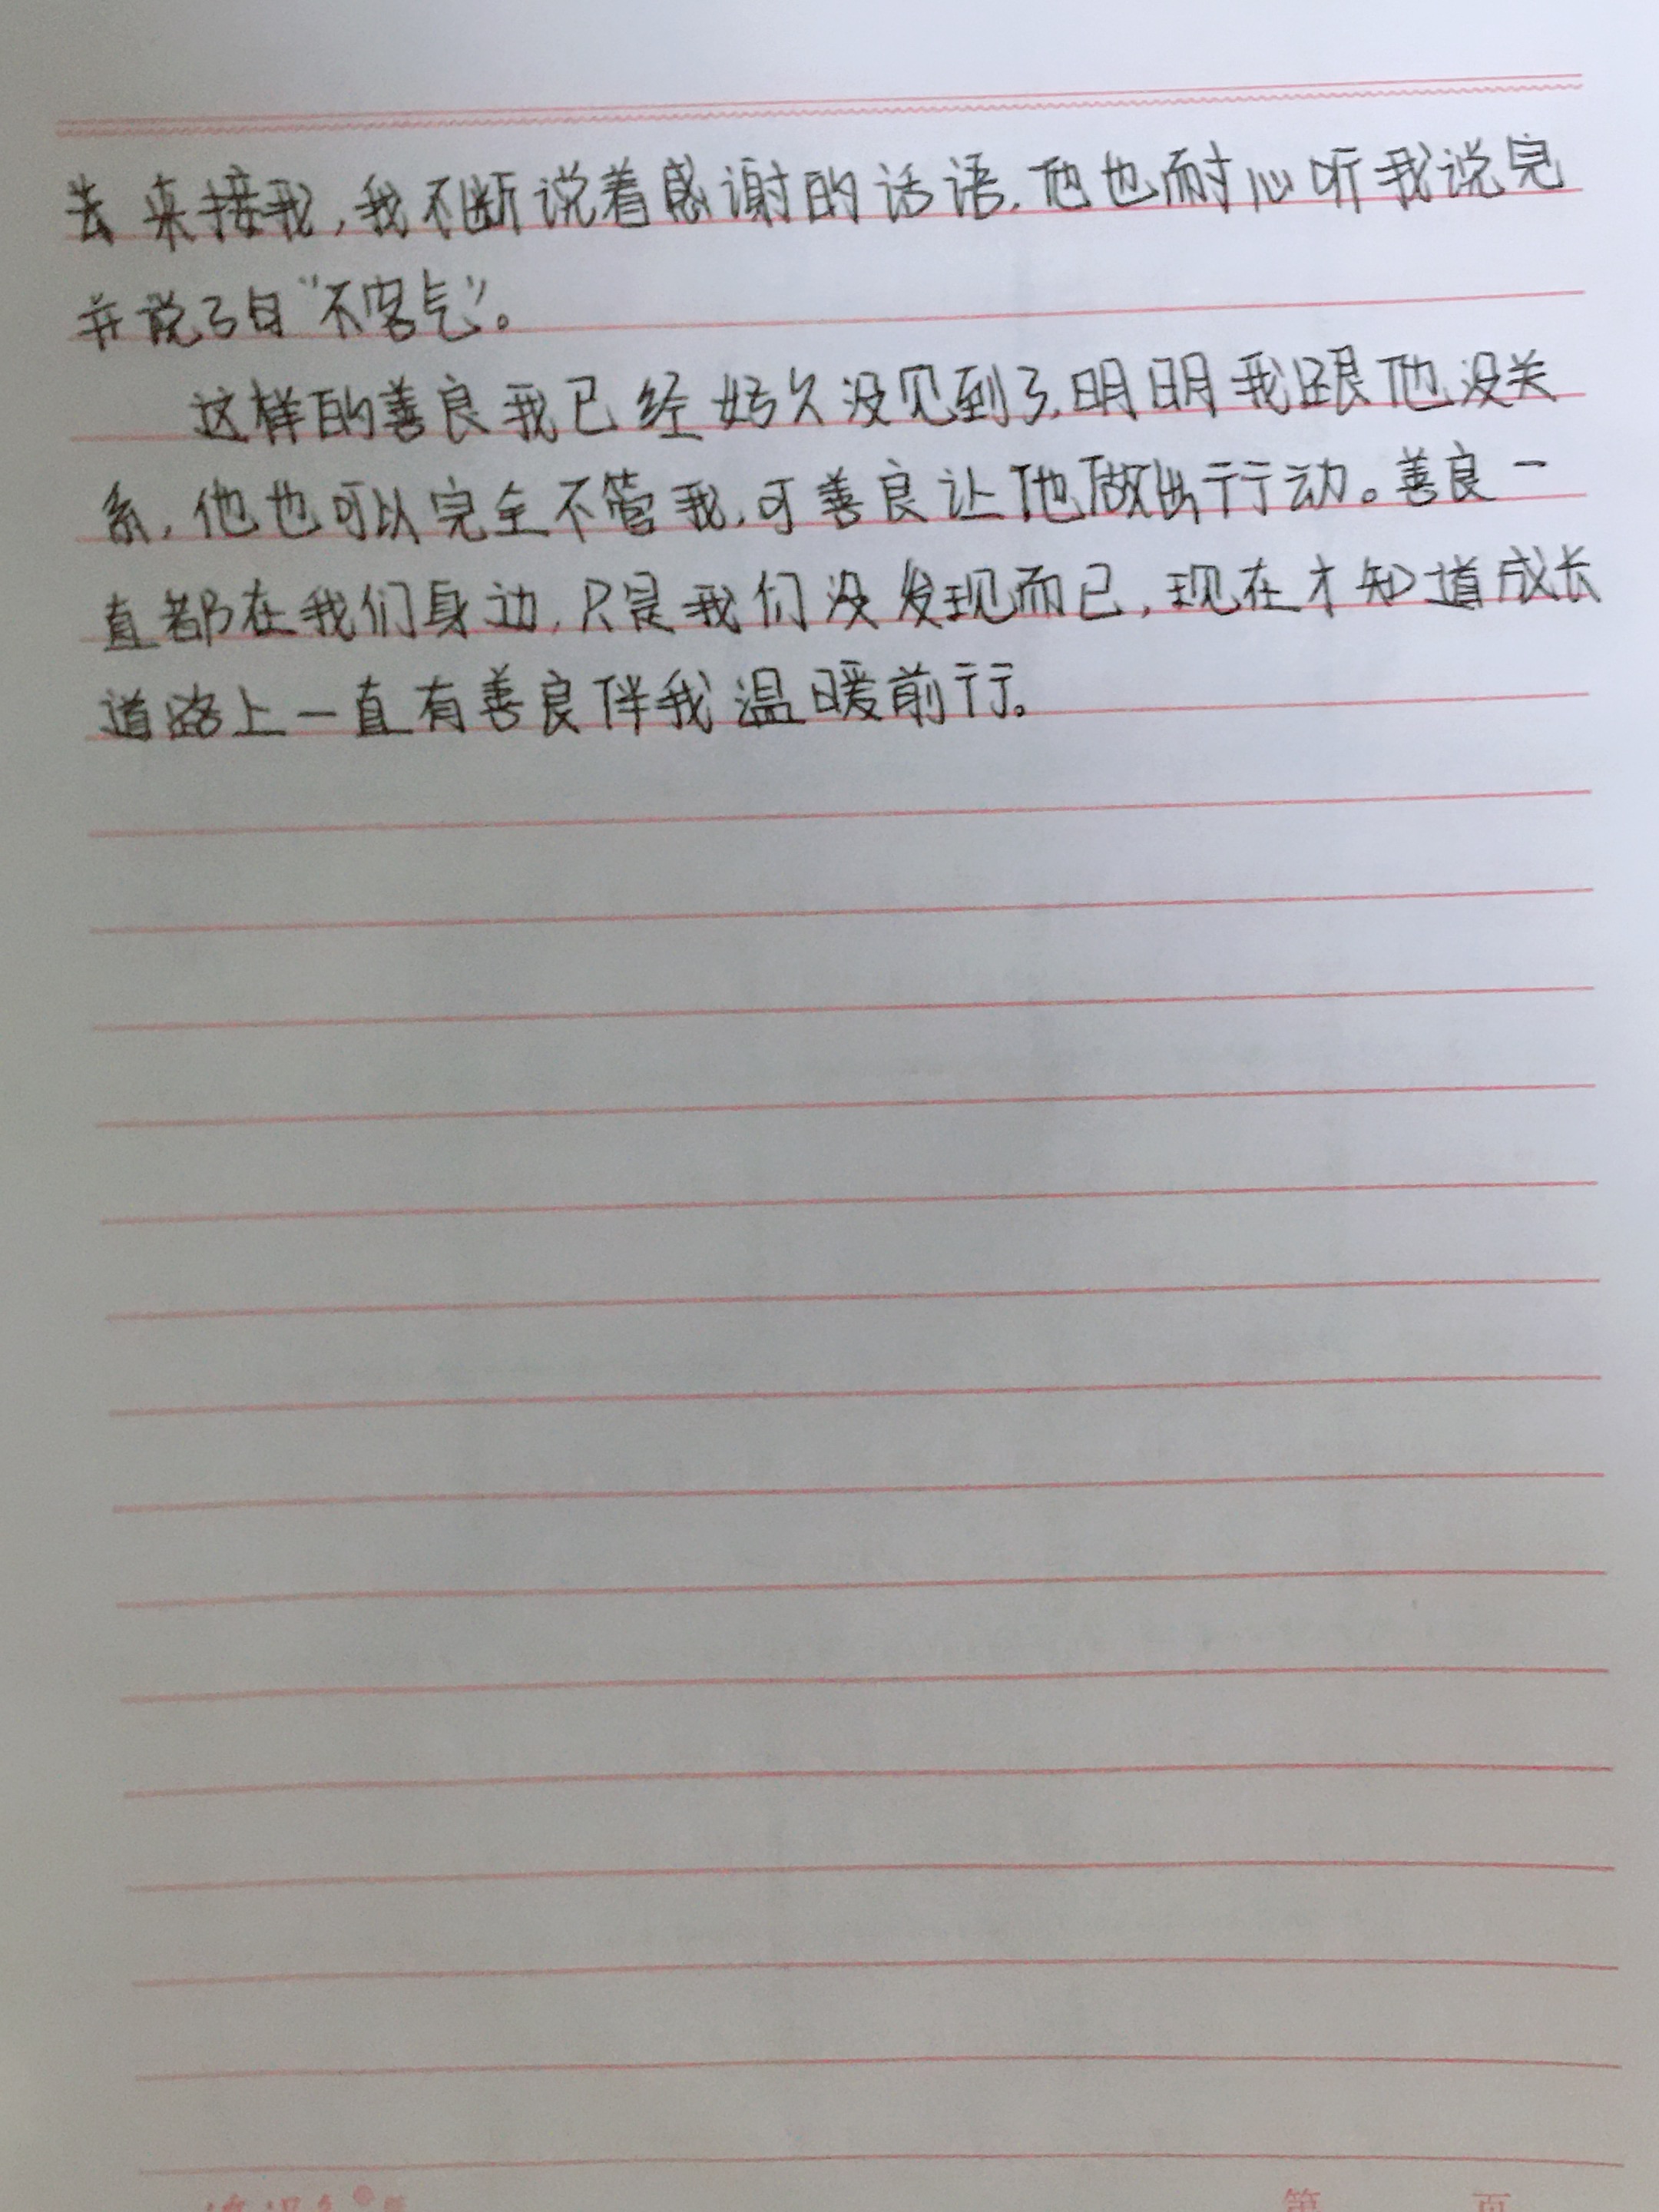 去来接我,我不断说着感谢的话语.他也耐心听我说完
并说了句“不客气”。
这样的善良我已经好久没见到了,明明我跟他没关
系,他也可以完全不管我,可善良让他做出行动。善良一
直都在我们身边,只是我们没发现而已,现在才知道成长
道路上一直有善良伴我温暖前行。
第 页